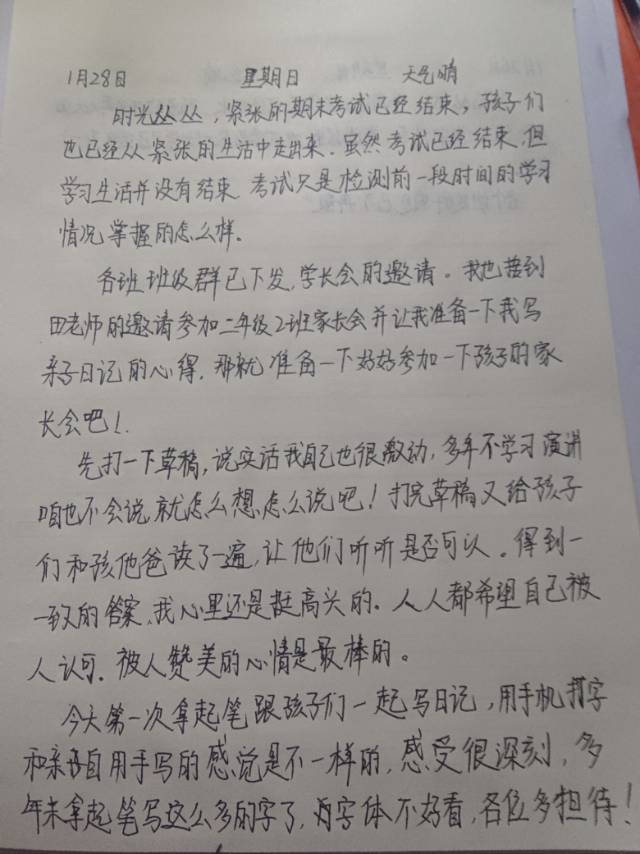 1月28日 星期日 天气晴
时光丛丛，紧张的期末考试已经结束，孩子们
也已经从紧张的生活中走出来．虽然考试已经结束．但
学习生活并没有结束．考试只是检测前一段时间的学习
情况掌握的怎么样．
各班班级群已下发，学长会的邀请。我也接到
田老师的邀请参加二年级2班家长会并让我准备一下我写
亲子日记的心得．那就准备一下好好参加一下孩子的家
长会吧！．
先打一下草稿，说实话我自己也很激动，多年不学习演讲
咱也不会说就怎么想怎么说吧！打完草稿又给孩子
们和孩他爸读了一遍，让他们听听是否可以．得到一
一致的答案、我心里还是挺高兴的．人人都希望自己被
人认可．被人赞美的心情是最棒的。
今天第一次拿起笔跟孩子们一起写日记，用手机打字
和亲自用手写的感觉是不一样的，感受很深刻．多
年未拿起笔写这么多的字了，字体不好看，各位多担待！